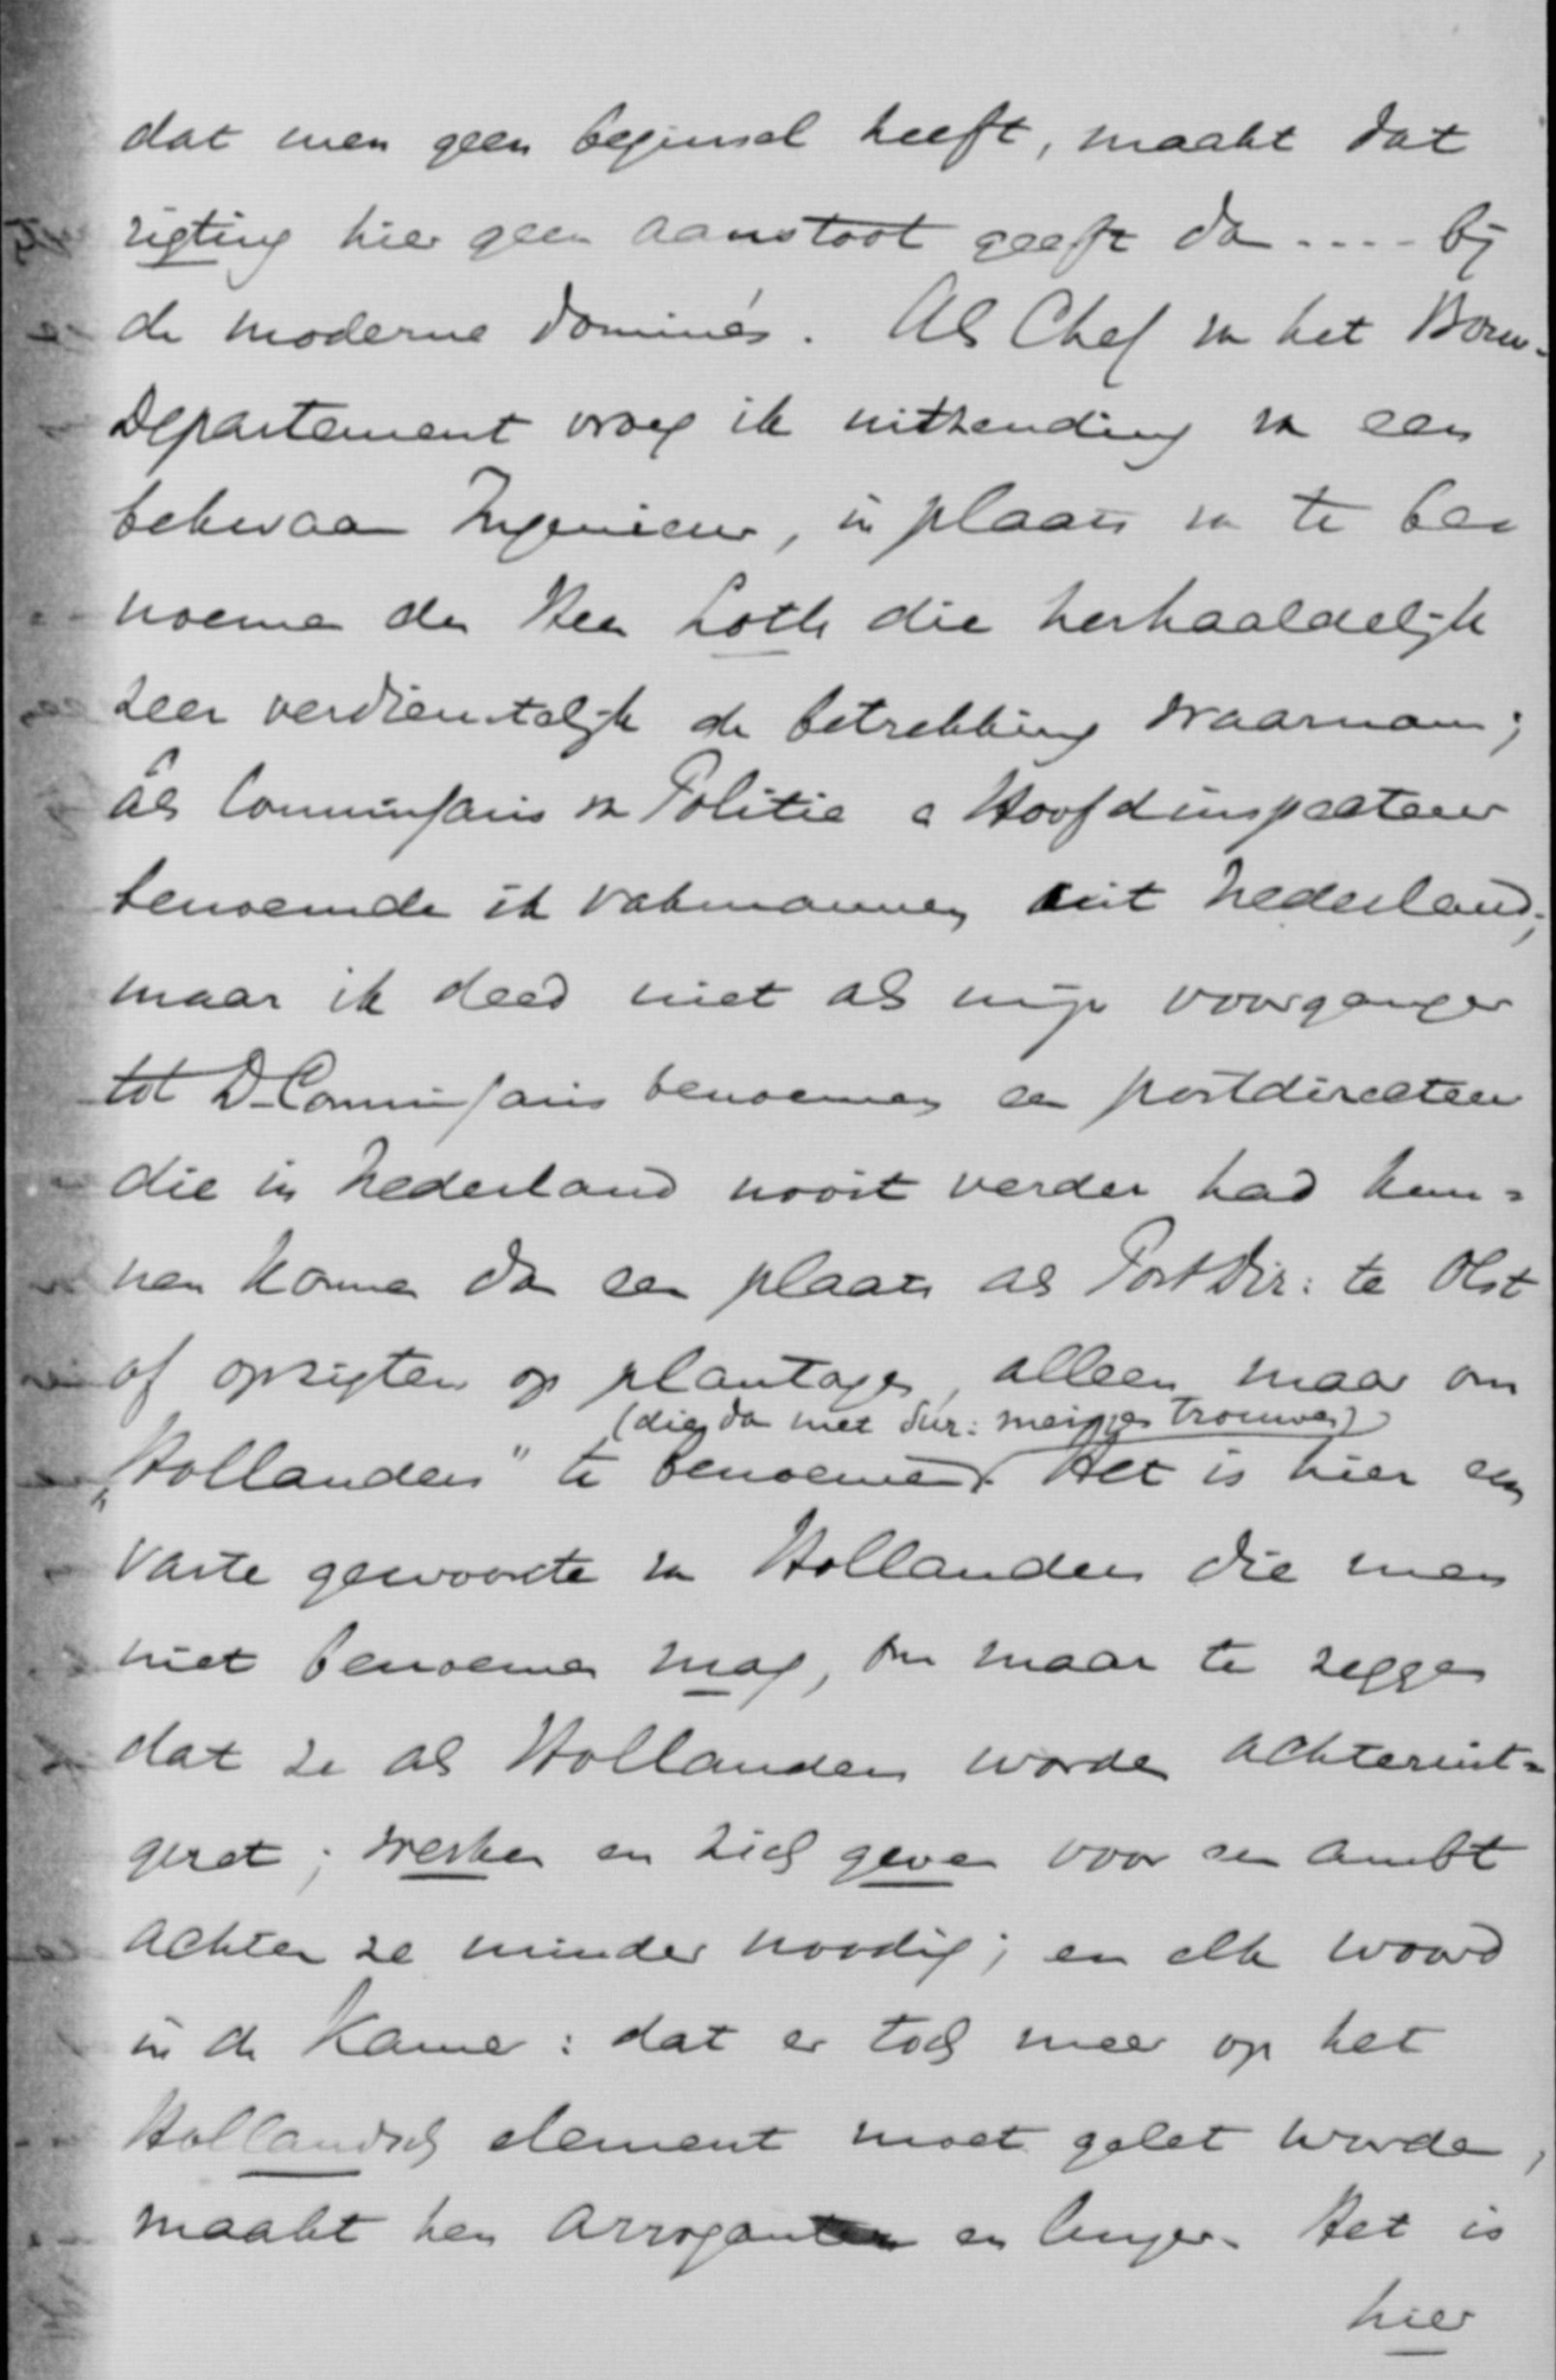 dat men geen beginsel heeft, maakt dat
rigting hier geen aanstoot geeft dan .... bij
de moderne dominés. Als Chef van het Bouw-
Departement vroeg ik uitzending van een
bekwaam Ingenieur, in plaats van te be
noemen den Heer Loth die herhaaldelijk
zeer verdienstelijk de betrekking waarnam;
als Commissaris van Politie & Hoofdinspecteur
benoemde ik vakmannen uit Nederland;
maar ik deed niet als mijn voorganger
tot D-Commissaris benoemen een postdirecteur
die in Nederland nooit verder had kun=
nen komen dan een plaats als PostDir: te Olst
of opzigter op plantages, alleen maar om
(die dan met Sur: meisjes trouwen)
„Hollanders" te benoemen. Het is hier een
vaste gewoonte van Hollanders die men
niet benoemen mag, om maar te zeggen
dat ze als Hollanders worden achteruit=
gezet; werken en zich geven voor een ambt
achten ze minder noodig; en elk woord
in de Kamer: dat er toch meer op het
Hollandsch element moet gelet worden,
maakt hen arroganter en luijer. Het is
hier